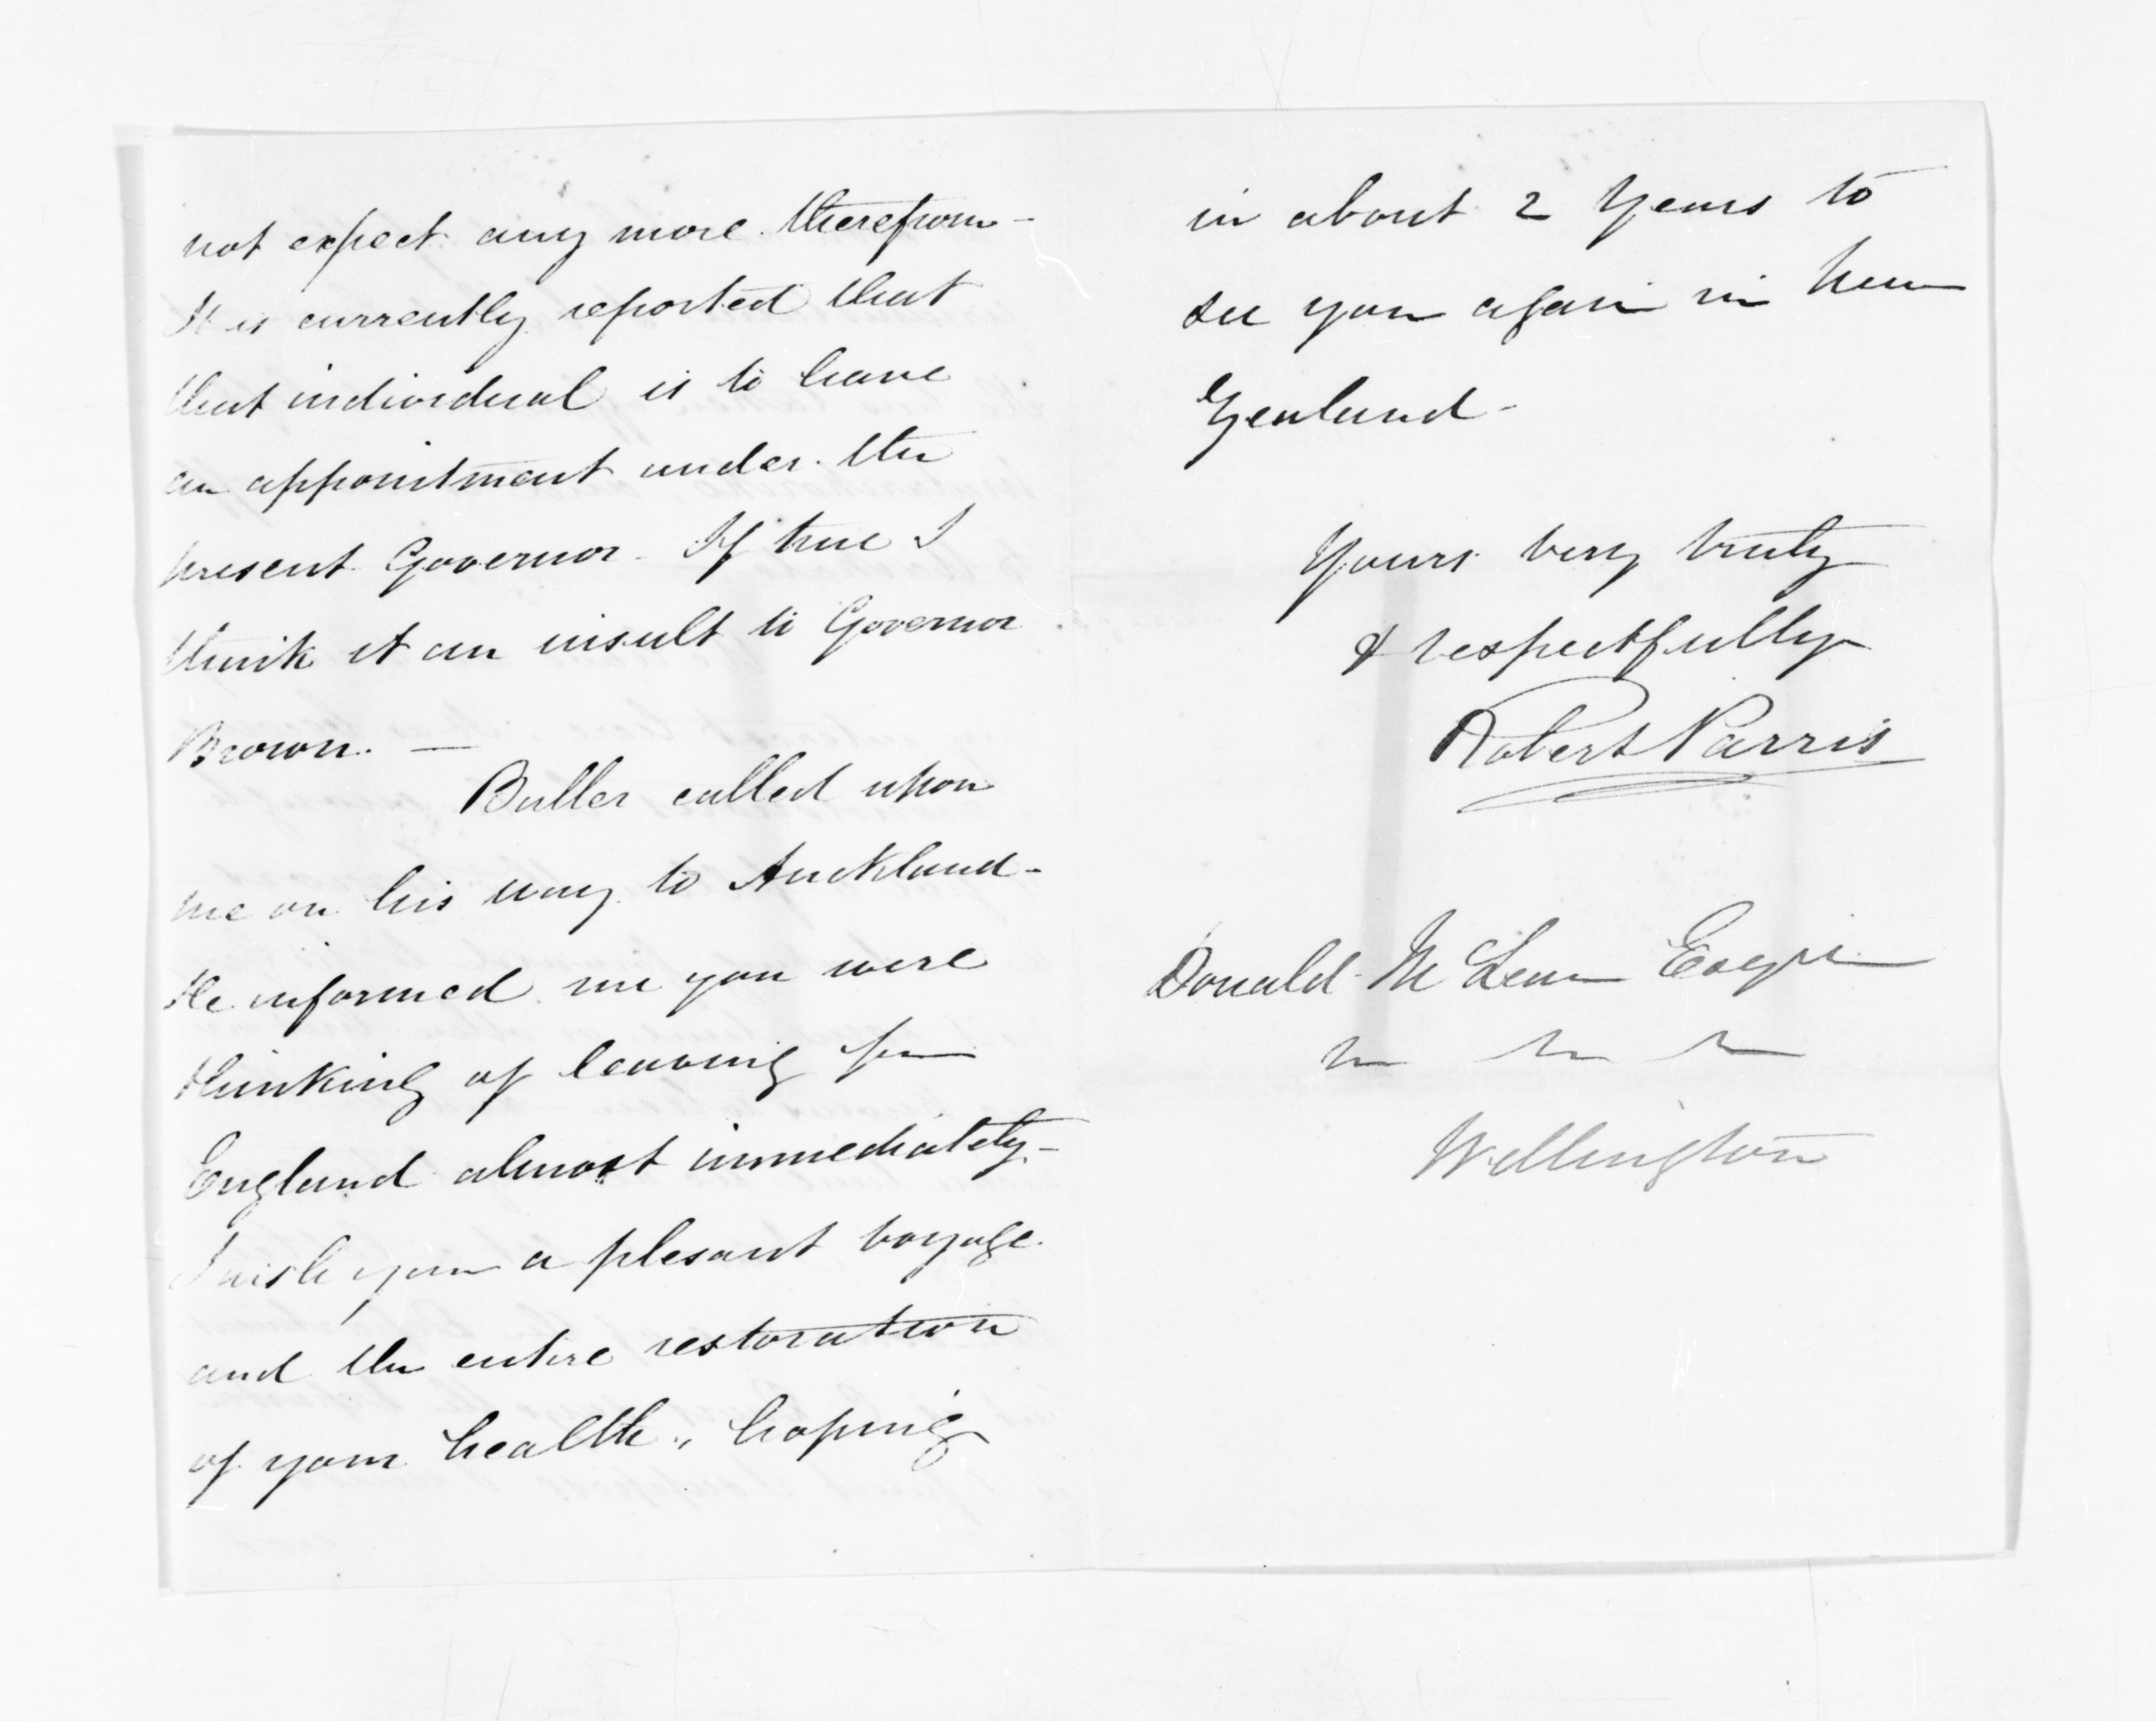 not expect any more therefrom -
It is currently reported that
that individual is to have
an appointment under the
present Governor - If true I
think it an insult to Governor
Brown. —
Buller called upon
me on his way to Auckland -
He informed me you were
thinking of leaving for
England almost immediately -
I wish you a plesant voyage
and the entire restoration
of your health, hoping
in about 2 Years to
see you again in New
Zealand -
Yours very truly
& respectfully
Robert Parris
Donald McLean Esqre
Wellington